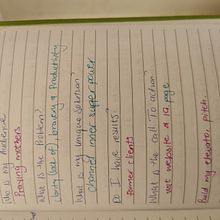 Who is my audience
Praying mothers
What is the Problem?
clarity, lack of, bravery & Productivity
What is my unique Solution?
channel inner super power
Do I have results?
former clients
What is the call to action?
visit website & IG page
Build my elevator pitch.